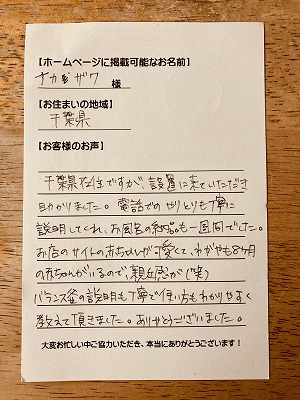 【ホームページに掲載可能なお名前】
ナカギザワ 様
【お住まいの地域】
千葉県
【お客様のお声】
千葉県在住ですが、設置に来ていただき
助かりました。電話でのやりとりも丁寧に
説明してくれ、お風呂の納品も一週間でした。
お店のサイトの赤ちゃんが可愛くて、わがやも8ヶ月
の赤ちゃんがいるので、親近感が(笑)
バランス釜の説明も丁寧で使い方もわかりやすく
教えて頂きました。ありがとうございました。
大変お忙しい中ご協力いただき、本当にありがとうございます！